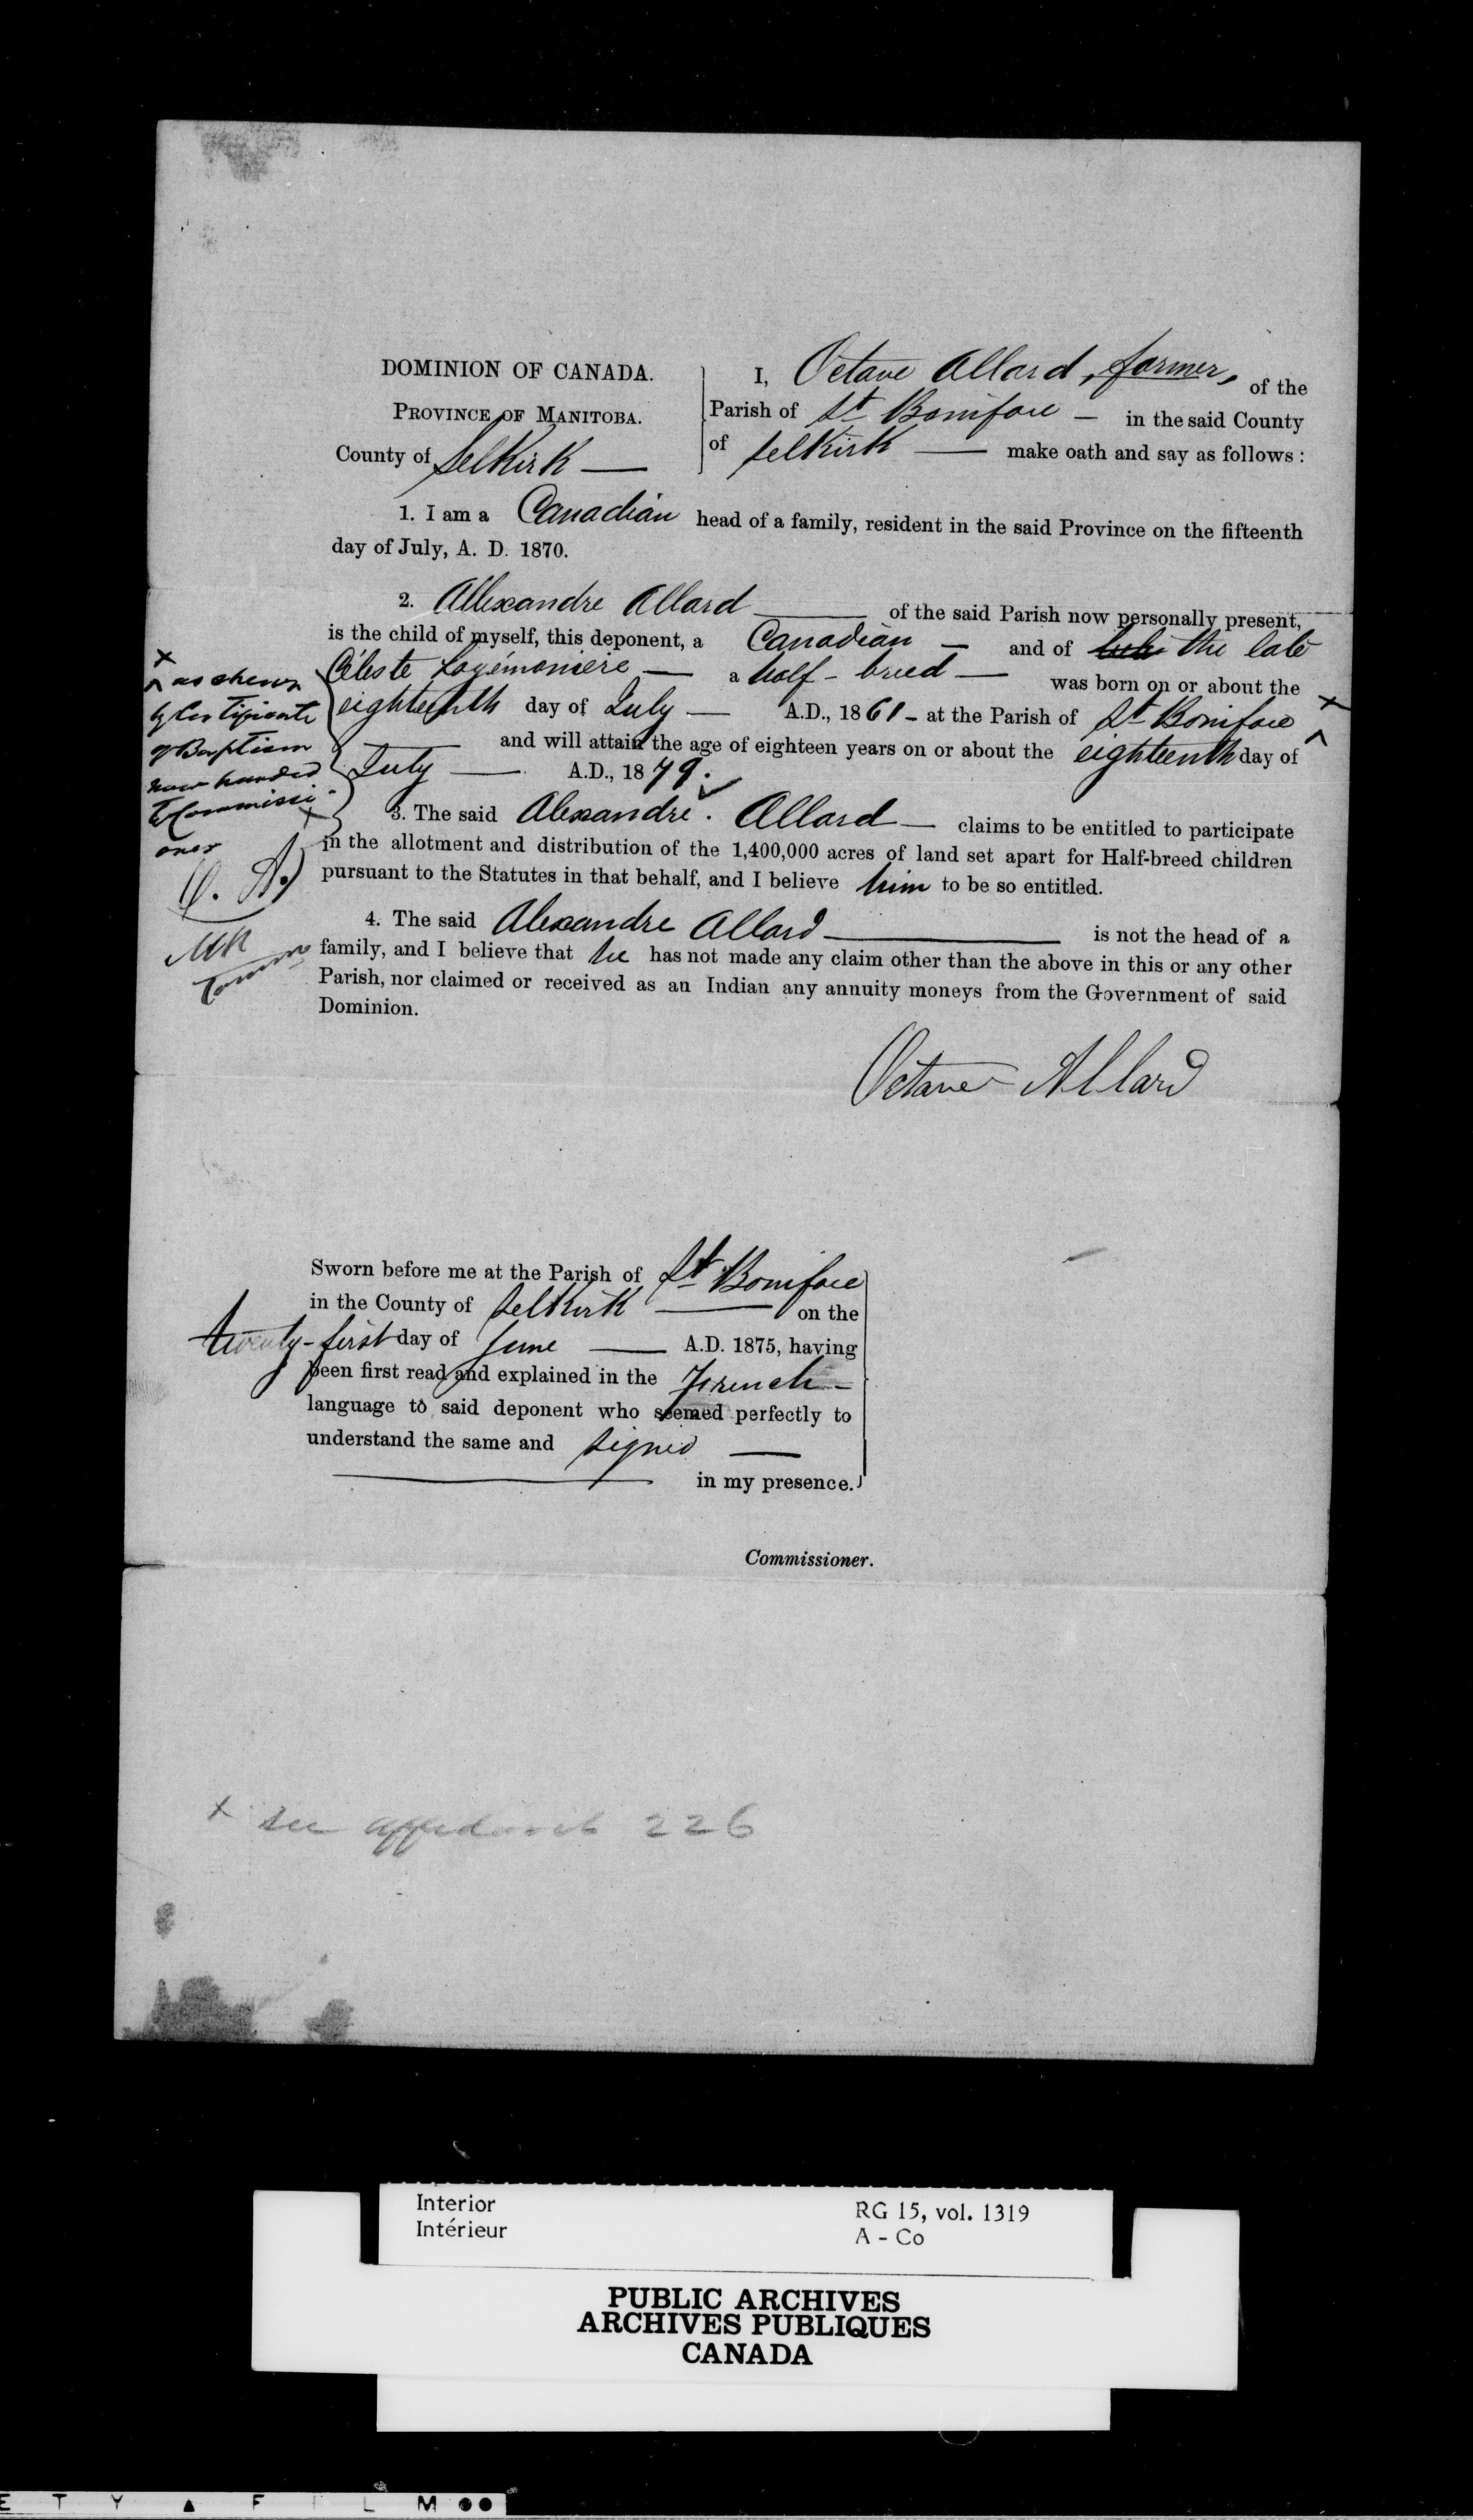 DOMINION OF CANADA.
PROVINCE OF MANITOBA.
County of Selkirk —
I, Octave Allard, farmer, of the
Parish of St Boniface — in the said County
of Selkirk — make oath and say as follows:
1. I am a Canadian head of a family, resident in the said Province on the fifteenth
day of July, A. D. 1870.
2. Allexandre Allard — of the said Parish now personally present,
is the child of myself, this deponent, a Canadian — and of the late
Céleste Lagémonière — a half-breed — was born on or about the
eighteenth day of July — A.D., 1861 – at the Parish of St Boniface x
— and will attain the age of eighteen years on or about the eighteenth day of
July — A.D., 1879.
x
^ as shewn
by Certificate
of Baptism
now handed
to Commissi-
oner x
O. A.
3. The said Alexandre Allard — claims to be entitled to participate
in the allotment and distribution of the 1,400,000 acres of land set apart for Half-breed children
pursuant to the Statutes in that behalf, and I believe him to be so entitled.
4. The said Alexandre Allard — is not the head of a
family, and I believe that he has not made any claim other than the above in this or any other
Parish, nor claimed or received as an Indian any annuity moneys from the Government of said
Dominion.
Octave Allard
Sworn before me at the Parish of St Boniface
in the County of Selkirk — on the
twenty-first day of June — A.D. 1875, having
been first read and explained in the French –
language to said deponent who seemed perfectly to
understand the same and signed —
— in my presence.
Commissioner.
x see affidavit 226
Interior
Intérieur
RG 15, vol. 1319
A - Co
PUBLIC ARCHIVES
ARCHIVES PUBLIQUES
CANADA
E T Y ▲ F I L M ●●